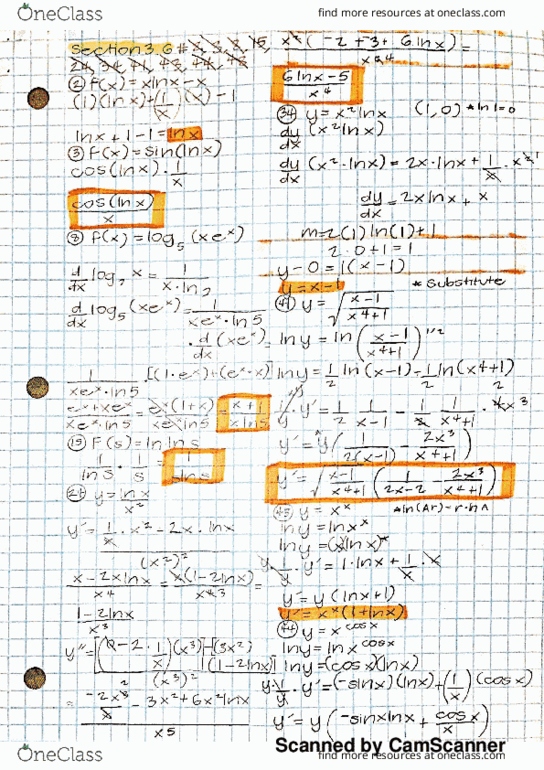 OneClass
find more resources at oneclass.com
Section 3.6 # 2, 3, 8, 15,
24, 34, 41, 43, 44, 48
② f(x) = xlnx - x
(1)(lnx) + (1/x)(x) - 1
lnx + 1 - 1 = lnx
③ f(x) = sin(lnx)
cos(lnx) · 1/x
cos(lnx)/x
⑧ f(x) = log₅(xeˣ)
d/dx
= 1/
d/dx log₅(xeˣ) = 1/(xeˣ · ln5)
· d/dx (xeˣ)
1/(xeˣ · ln5) · [(1·eˣ) + (eˣ · x)]
(eˣ + xeˣ)/(xeˣ · ln5) = eˣ(1+x)/(xeˣ ln5) = (x+1)/(x ln5)
⑮ F(s) = ln ln s
1/lns · 1/s = 1/
y = lnx/x²
y' = 1/x · x² - 2x · lnx
(x²)²
(x - 2xlnx)/x⁴ = x(1 - 2lnx)/x⁴ ³ =
(1 - 2lnx)/x³
y'' = (x³) - (3x²)
(1 - 2lnx)
(x³)²
= -2x³/x - 3x² + 6x²lnx
(-2 - 3 + 6lnx) =
(6lnx - 5)/x⁴
㉞ y = x²lnx (1, 0) * ln1 = 0
dy/dx (x²lnx)
dy/dx (x² · lnx) = 2x · lnx + 1/x · x²
dy/dx = 2xlnx + x
m = 2(1) ln(1) + 1
2 · 0 + 1 = 1
y - 0 = 1(x - 1)
y = x - 1 * Substitute
㊶ y = √((x-1)/(x⁴+1))
lny = ln((x-1)/(x⁴+1))^1/2
lny = 1/2 ln(x-1) - 1/2 ln(x⁴+1)
1/y · y' = 1/2 · 1/(x-1) - 1/2 · 1/(x⁴+1) · 4x³
y' = y(1/(2(x-1)) - 2x³/(x⁴+1))
y' = √((x-1)/(x⁴+1)) (1/(2x-2) - 2x³/(x⁴+1))
㊸ y = xˣ
lny = lnxˣ
lny = (x)(lnx)
y · 1/y · y' = 1 · lnx + 1/x · x
y' = y(lnx + 1)
y' = xˣ(1 + lnx)
㊹ y = x^cosx
lny = lnx^cosx
lny = (cosx)(lnx)
y · 1/y · y' = (-sinx)(lnx) + (1/x)(cosx)
y' = y(-sinxlnx + cosx/x)
Scanned by CamScanner
OneClass
find more resources at oneclass.com